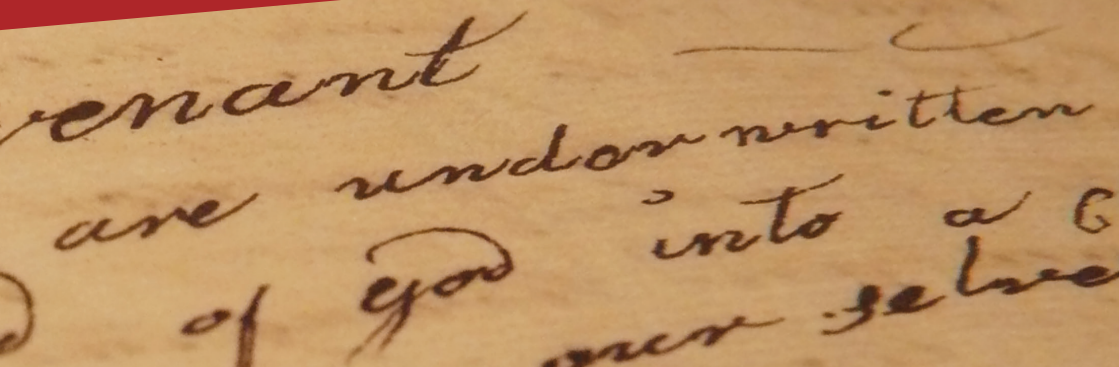 venant
are underwritten
of god into a
our selve